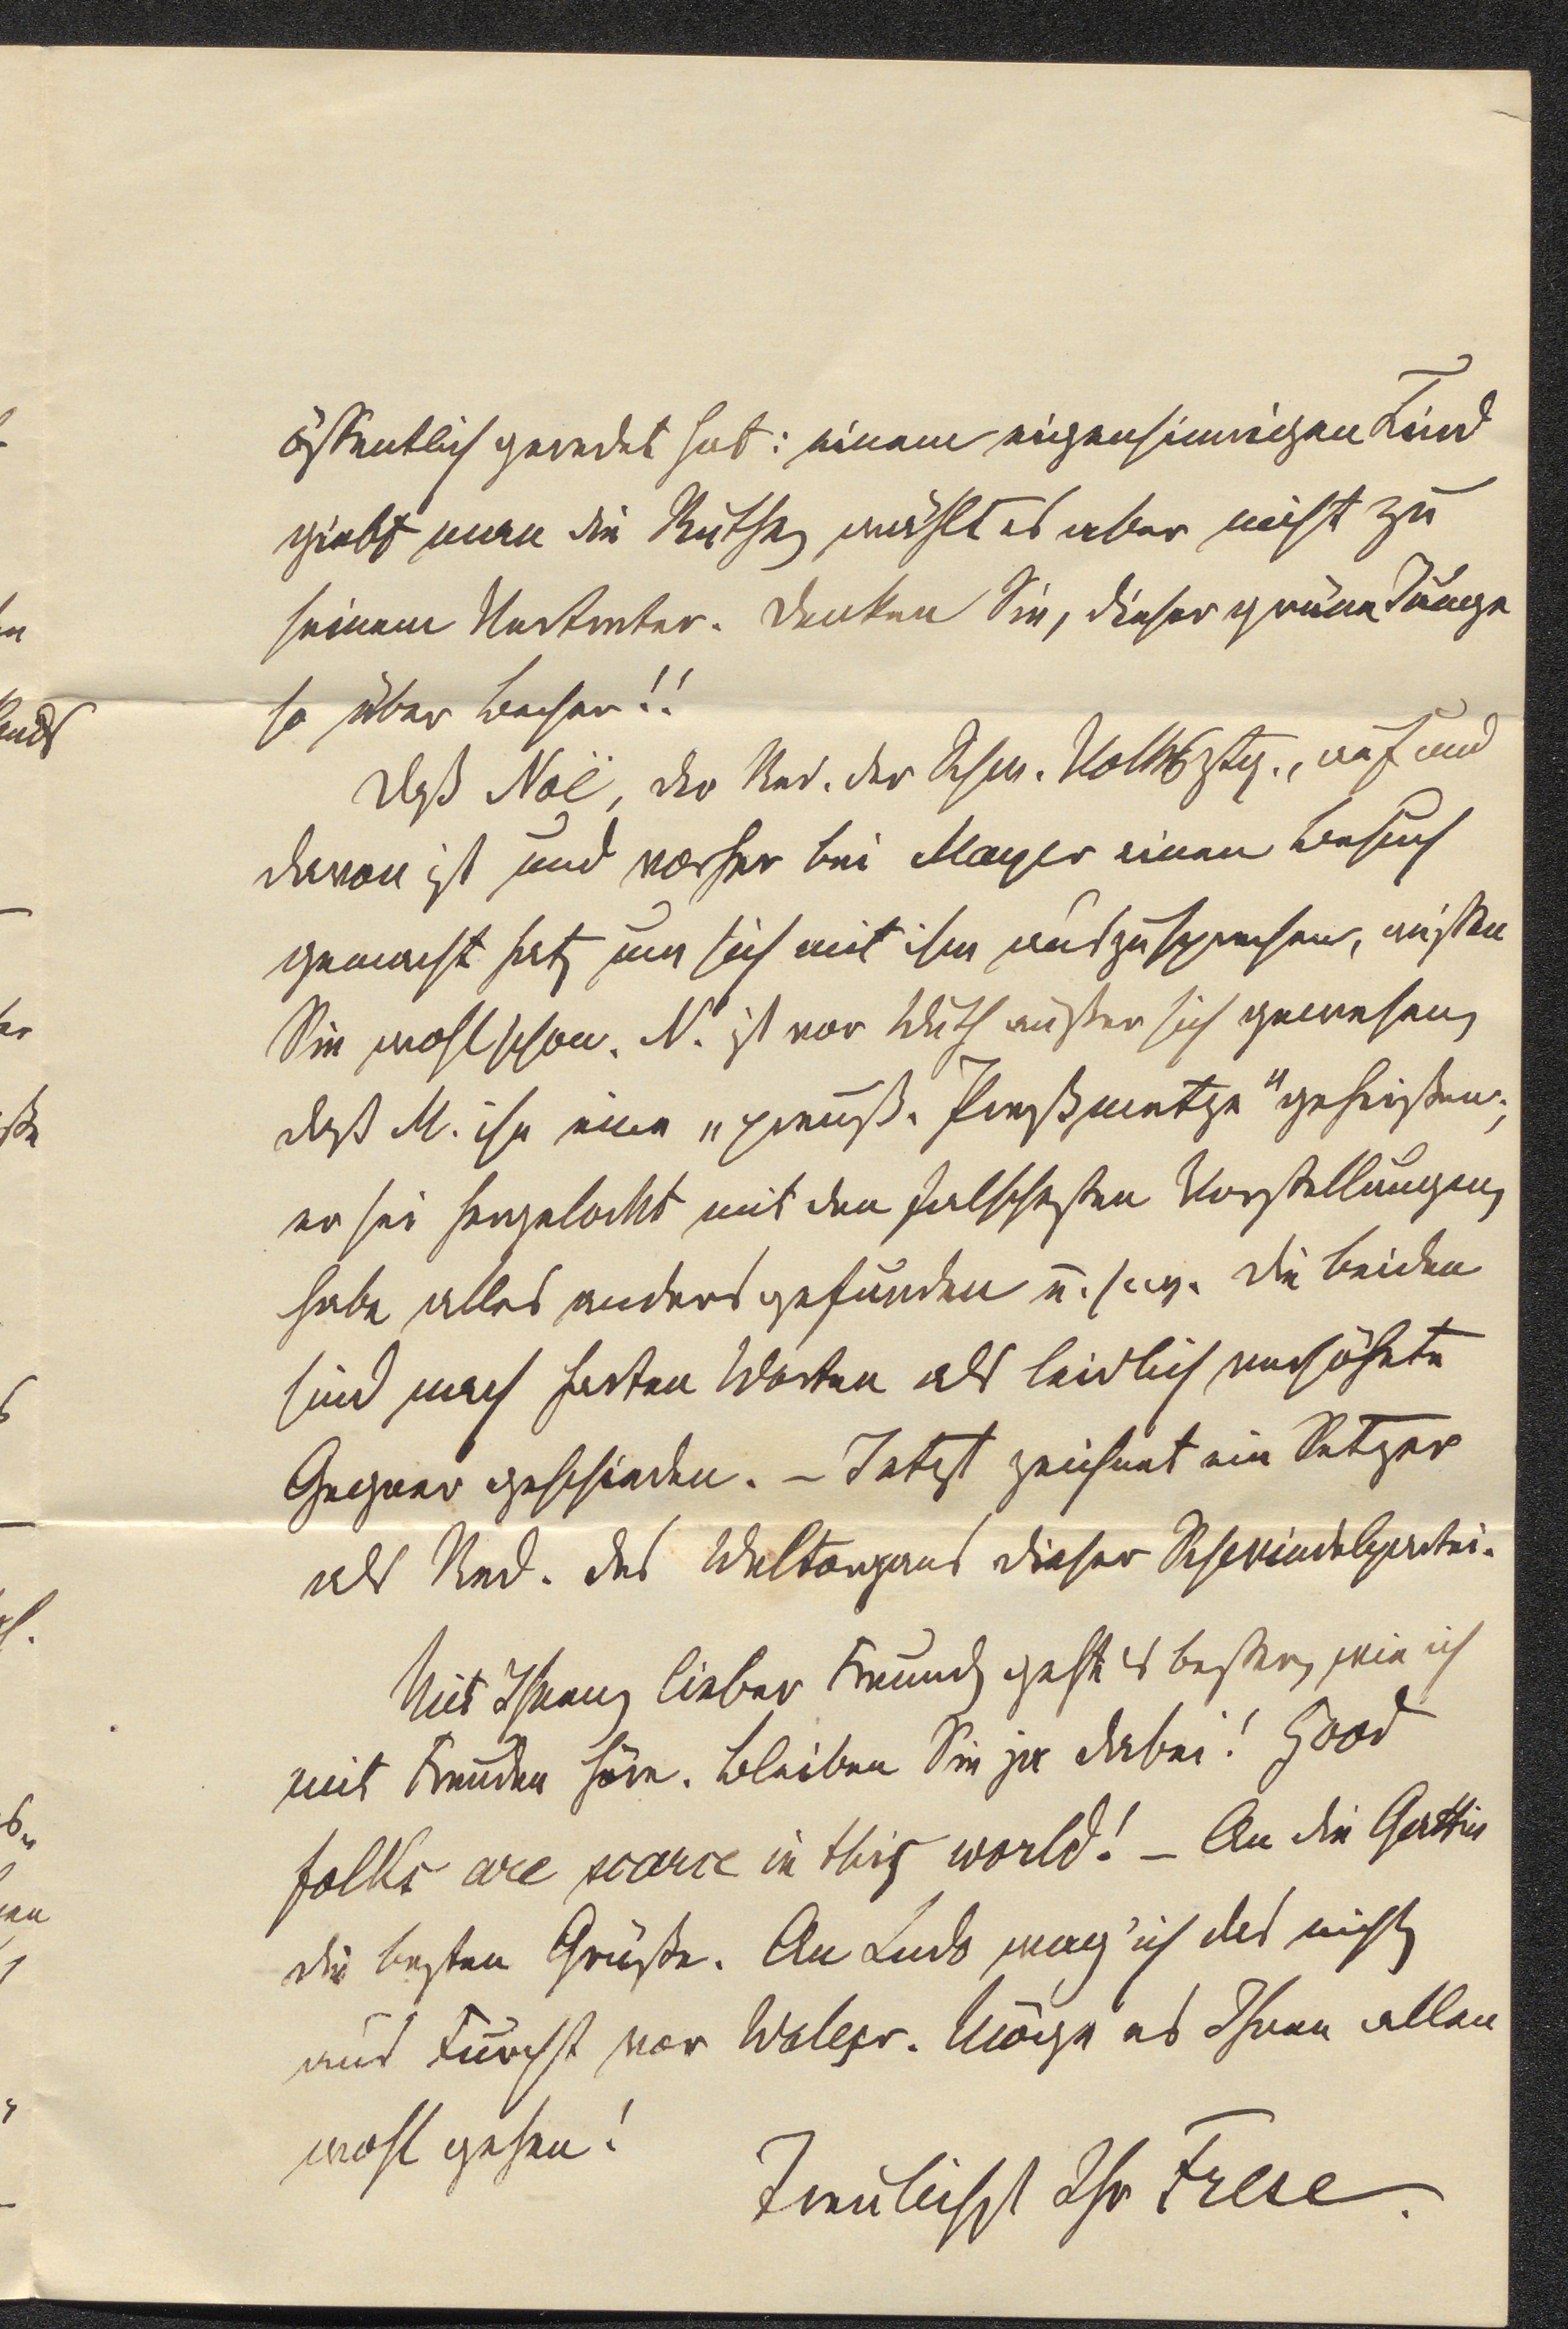 öffentlich geredet hat: einem eigensinnigen Kind
giebt man die Ruthe, wählt es aber nicht zu
seinem Vertreter. Denken Sie, dieser grüne Junge
so über Becher!!
Daß Noë, der Red. der Schw. Volksztg., auf und
davon ist und vorher bei Mayer einen Besuch
gemacht hat, um sich mit ihm auszusprechen, wissen
Sie wohl schon. N. ist vor Wuth außer sich gewesen,
daß M. ihn eine „preuß. Preßmetze" geheißen;
er sei hergelockt mit den falschesten Vorstellungen,
habe alles anders gefunden u. s. w. Die beiden
sind nach harten Worten als leidlich versöhnte
Gegner geschieden. – Jetzt zeichnet ein Setzer
als Red. des Weltorgans dieser Schwindelpartei.
Mit Ihnen, lieber Freund, geht es besser, wie ich
mit Freuden höre. Bleiben Sie ja dabei! Good
folks are scarce in this world! – An die Gattin
die besten Grüße. An Ludo mag' ich das nicht,
aus Furcht vor Walesr. Möge es Ihnen allen
wohl gehen!
Treulichst Ihr Frese.